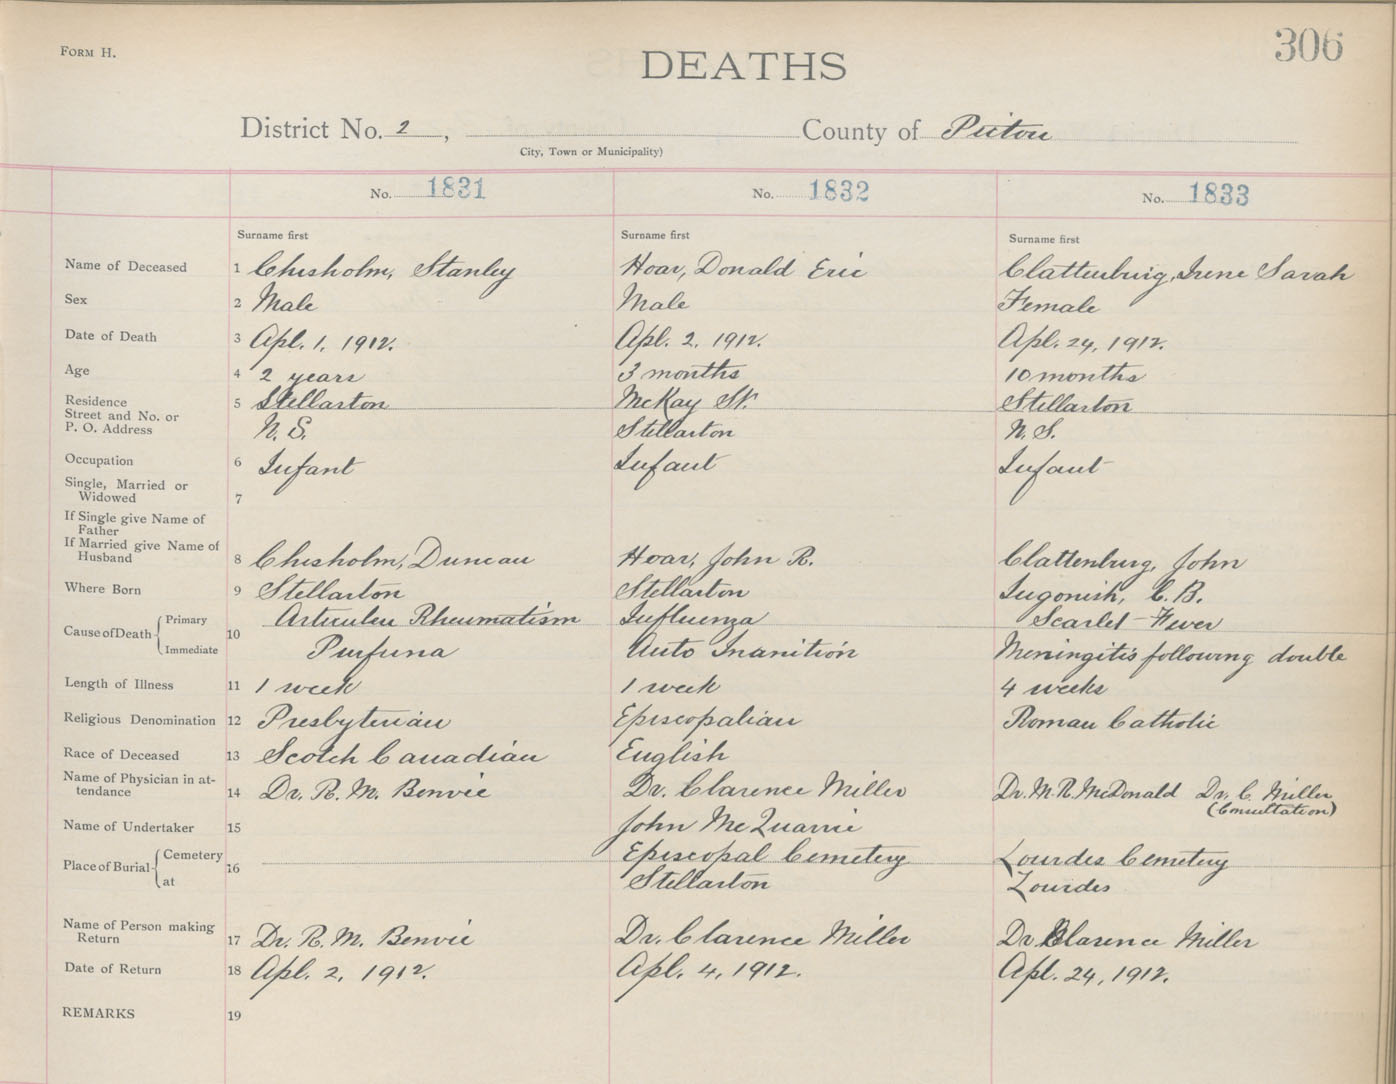 FORM H.
306
DEATHS
District No. 2, County of Pictou
City, Town or Municipality)
No. 1831 No. 1832 No. 1833
Surname first Surname first Surname first
Name of Deceased 1 Chisholm, Stanley Hoar, Donald Eric Clattenburg, Irene Sarah
Sex 2 Male Male Female
Date of Death 3 Apl. 1, 1912. Apl. 2, 1912. Apl. 24, 1912.
Age 4 2 years 3 months 10 months
Residence 5 Stellarton McKay St. Stellarton
Street and No. or
P. O. Address N. S. Stellarton N. S.
Occupation 6 Infant Infant Infant
Single, Married or
Widowed 7
If Single give Name of
Father
If Married give Name of
Husband 8 Chisholm, Duncan Hoar, John R. Clattenburg, John
Where Born 9 Stellarton Stellarton Ingonish, C. B.
Cause of Death Primary 10 Articuleu Rheumatism Influenza Scarlet Fever
Immediate Purfuna Auto Inanition Meningitis following double
Length of Illness 11 1 week 1 week 4 weeks
Religious Denomination 12 Presbyterian Episcopalian Roman Catholic
Race of Deceased 13 Scotch Canadian English
Name of Physician in at-
tendance 14 Dr. R. M. Benvie Dr. Clarence Miller Dr. M. R. McDonald Dr. C. Miller
(Consultation)
Name of Undertaker 15 John McQuarrie
Place of Burial Cemetery 16 Episcopal Cemetery Lourdes Cemetery
at Stellarton Lourdes
Name of Person making
Return 17 Dr. R. M. Benvie Dr. Clarence Miller Dr Clarence Miller
Date of Return 18 Apl. 2, 1912. Apl. 4, 1912. Apl. 24, 1912.
REMARKS 19